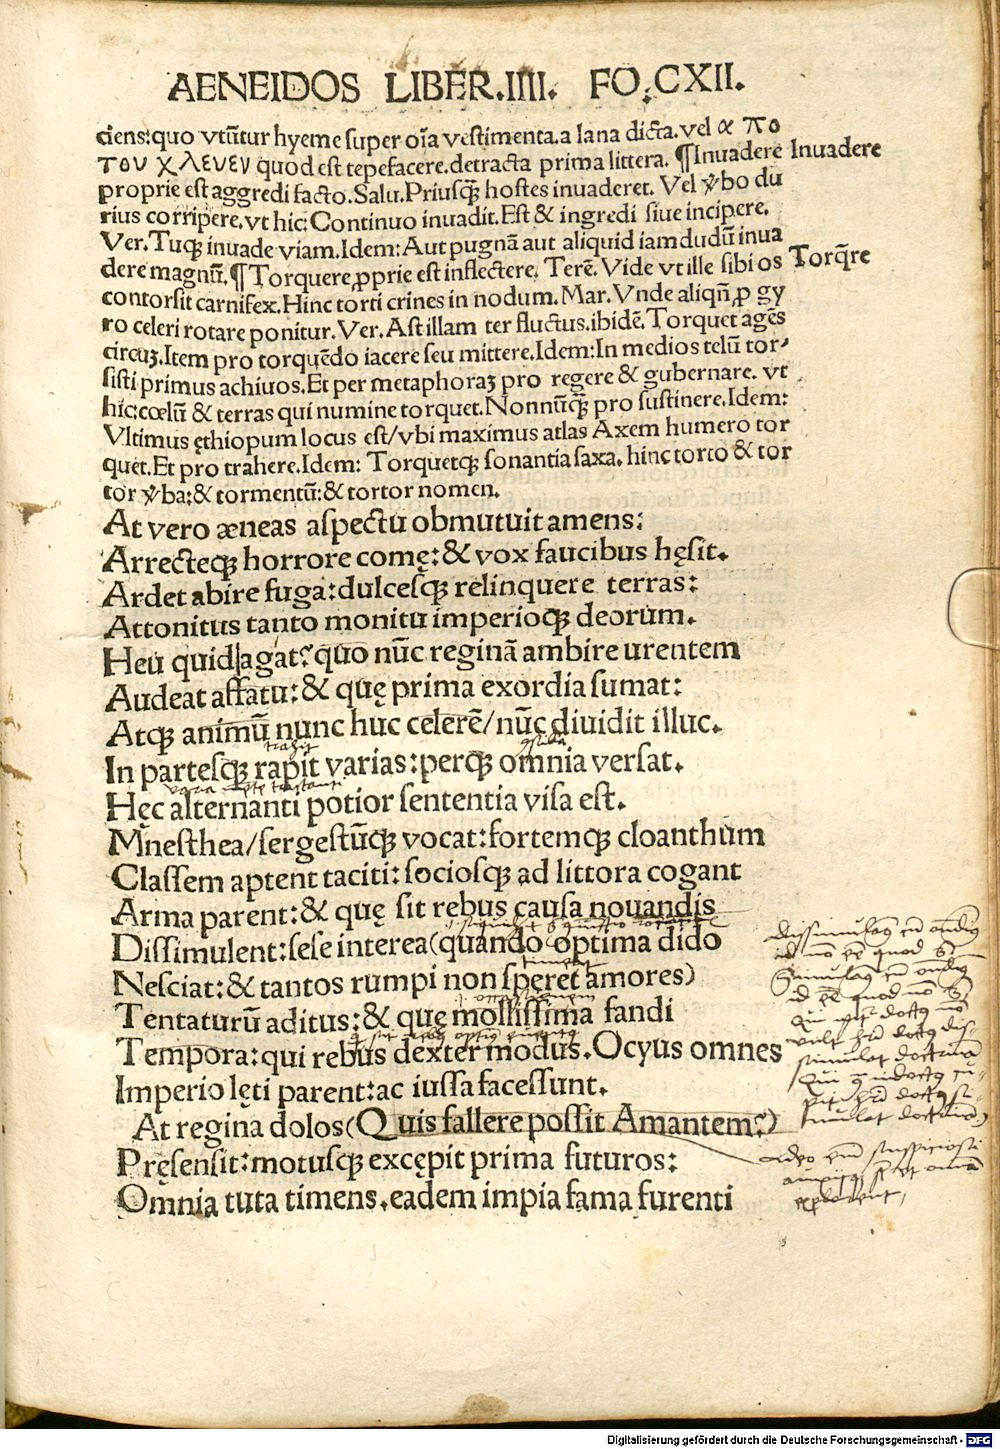 AENEIDOS LIBER.IIII. FO.CXII.
ciens:quo vtũtur hyeme super oĩa vestimenta.a lana dicta.vel απο
του χλευεν quod est tepefacere.detracta prima littera. ¶Inuadere Inuadere
proprie est aggredi facto.Salu.Priusꝗ̃ hostes inuaderet. Vel ꝟbo du
rius corripere.vt hic:Continuo inuadit.Est & ingredi siue incipere.
Ver.Tuqꝫ inuade viam.Idem:Aut pugnã aut aliquid iamdudũ inua
dere magnũ.¶Torquere ꝓprie est inflectere. Terẽ. Vide vt ille sibi os Torq̃re
contorsit carnifex.Hinc torti crines in nodum.Mar.Vnde aliqñ ꝓ gy
ro celeri rotare ponitur.Ver.Ast illam ter fluctus.ibidẽ.Torquet agẽs
circuꝫ.Item pro torquẽdo iacere seu mittere.Idem:In medios telũ tor-
sisti primus achiuos.Et per metaphoraꝫ pro regere & gubernare. vt
hic:cœlũ & terras qui numine torquet.Nonnũꝗ̃ pro sustinere.Idem:
Vltimus ęthiopum locus est/vbi maximus atlas Axem humero tor
quet.Et pro trahere.Idem: Torquetqꝫ sonantia saxa. hinc torto & tor
tor ꝟba:& tormentũ:& tortor nomen.
At vero æneas aspectu obmutuit amens:
Arrecteqꝫ horrore comę:& vox faucibus hęsit.
Ardet abire fuga:dulcesqꝫ relinquere terras:
Attonitus tanto monitu imperioqꝫ deorum.
Heu quid agat?quo nũc reginã ambire urentem
Audeat affatu:& quę prima exordia sumat:
Atqꝫ animũ nunc huc celerẽ/nũc diuidit illuc.
trahit
In partesqꝫ rapit varias:perqꝫ omnia versat.
Hęc alternanti potior sententia visa est.
Mnesthea/sergestũqꝫ vocat:fortemqꝫ cloanthum
Classem aptent taciti:sociosqꝫ ad littora cogant
Arma parent:& quę sit rebus causa nouandis
Dissimulent:sese interea(quando optima dido
Nesciat:& tantos rumpi non speret amores)
Tentaturũ aditus:& quę mollissima fandi
Tempora:qui rebus dexter modus.Ocyus omnes
Imperio lęti parent:ac iussa facessunt.
At regina dolos(Quis fallere possit Amantem?)
Pręsensit:motusqꝫ excępit prima futuros:
Omnia tuta timens.eadem impia fama furenti
Digitalisierung gefördert durch die Deutsche Forschungsgemeinschaft - DFG